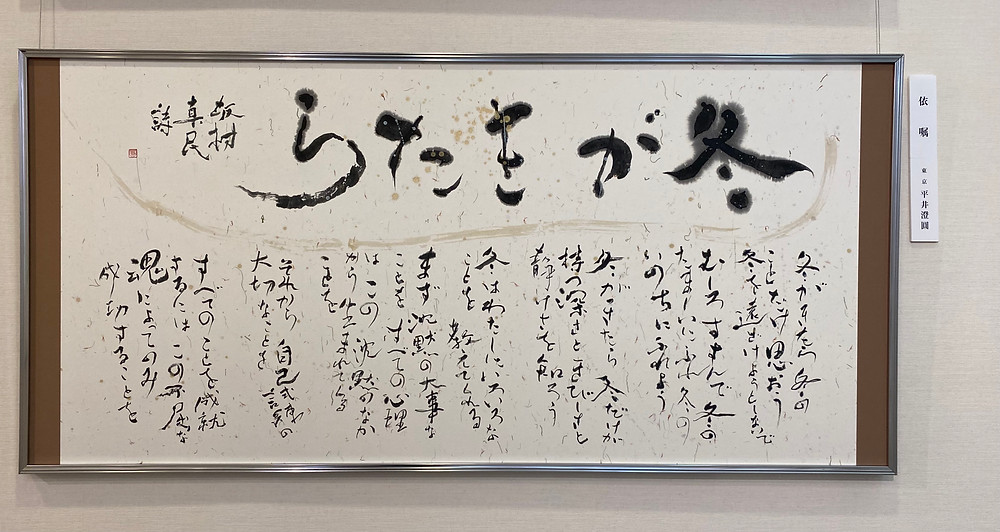 冬がきたら
坂村
真民
詩
冬がきたら 冬の
ことだけ思おう
冬を遠ざけようとしないで
むしろすすんで 冬の
たましいにふれ 冬の
いのちにふれよう
冬がきたら 冬だけが
持つ深さときびしさと
静けさを知ろう
冬はわたしにいろいろな
ことを 教えてくれる
まず 沈黙の大事な
ことを すべての心理
は この 沈黙のなか
から 生まれてくる
ことを
それから 自己試練の
大切なことを
すべてのことを成就
するには この不屈な
魂によってのみ
成功することを
依嘱
東京 平井澄圓